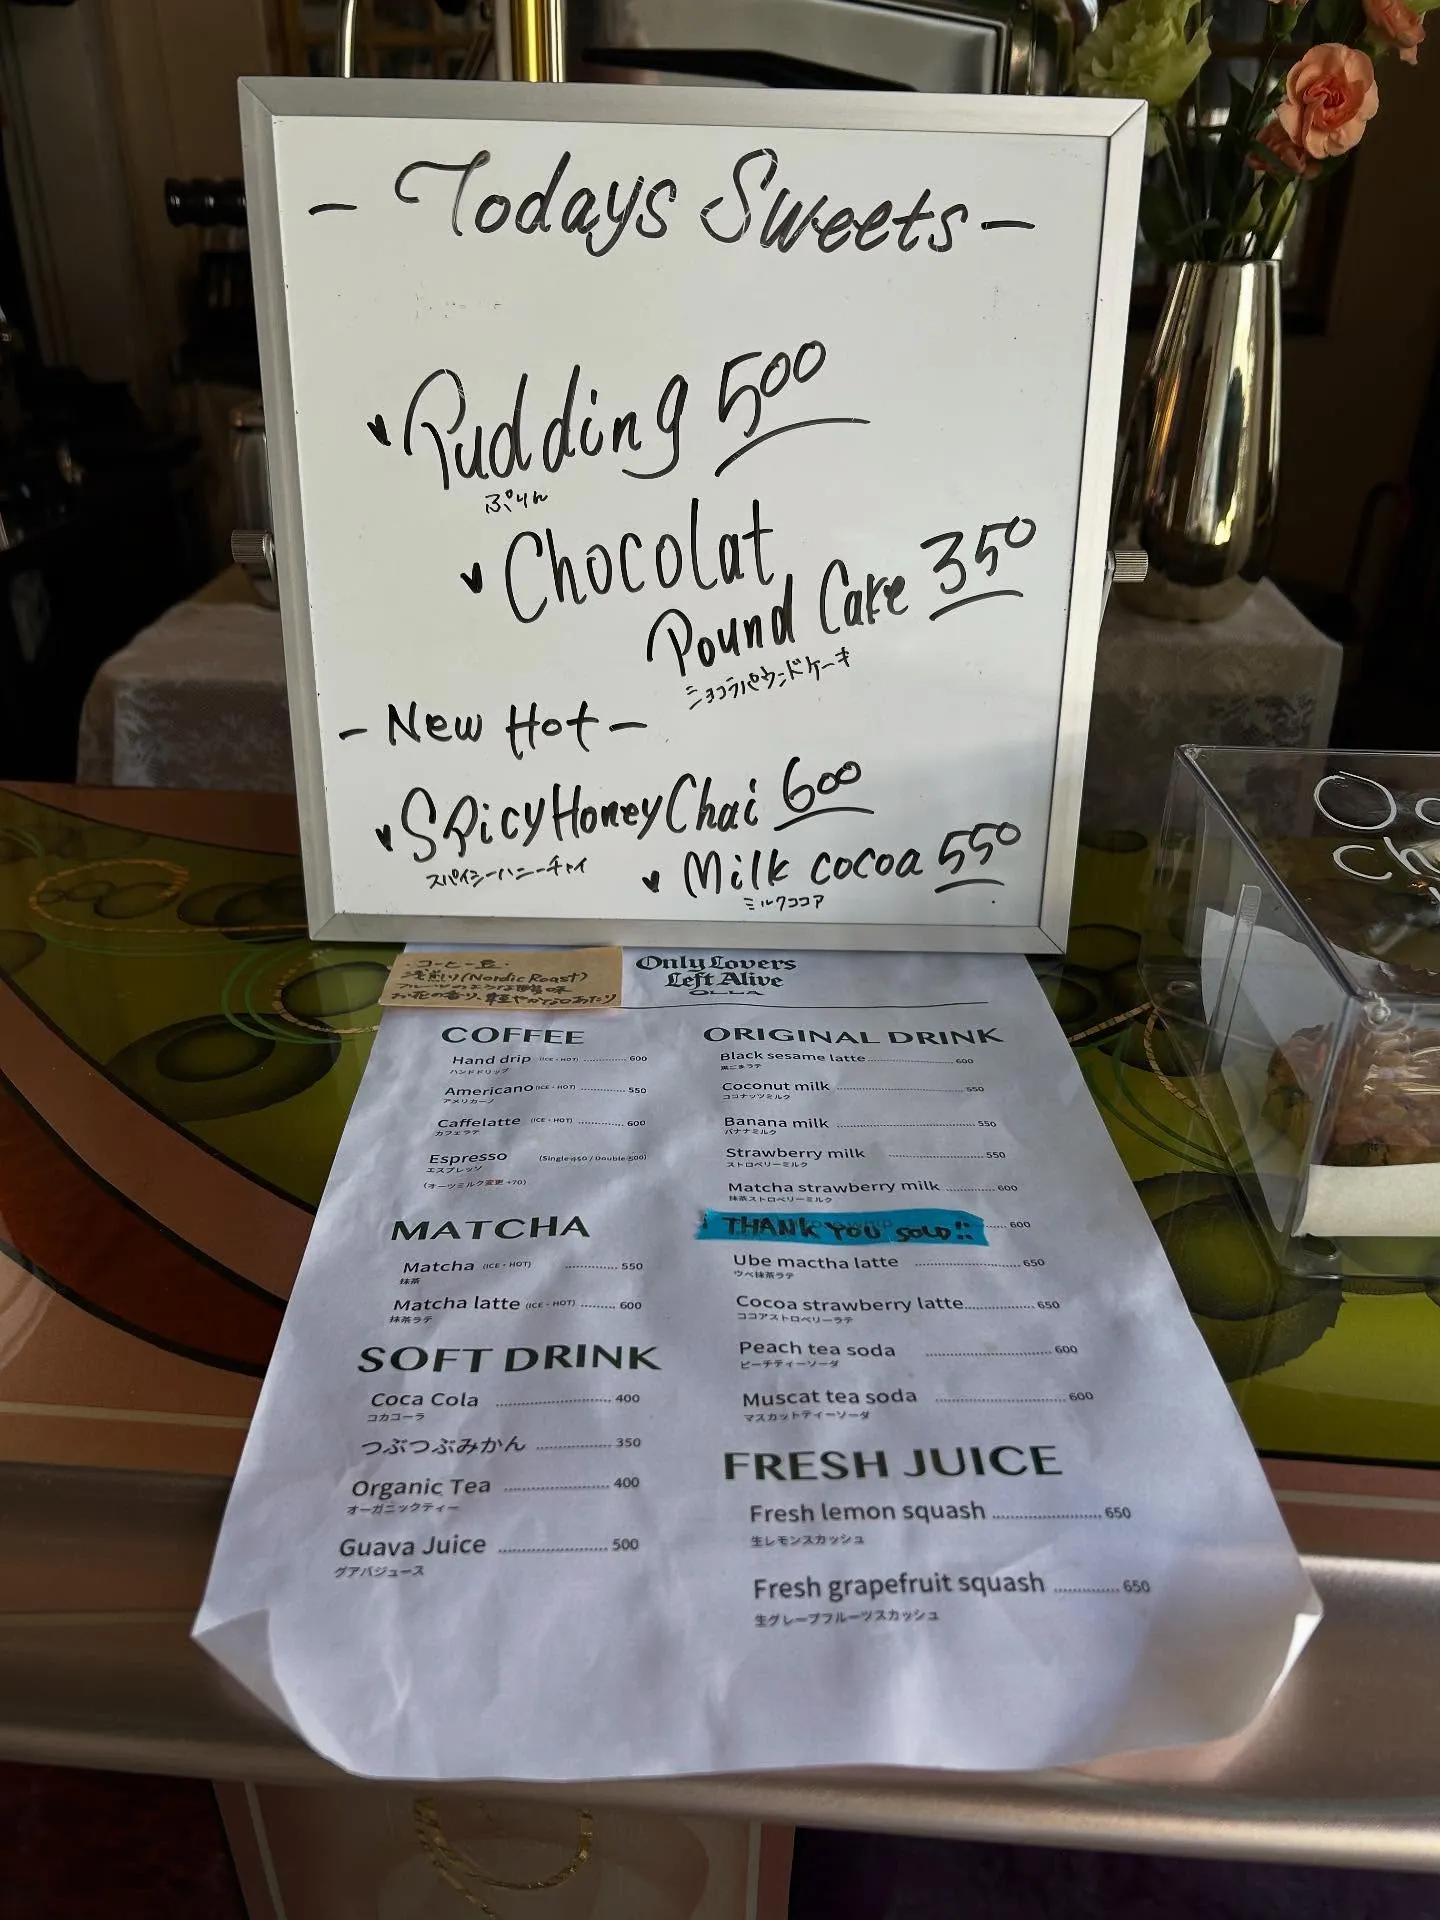 - Todays Sweets -
Pudding 500
ぷりん
Chocolat
Pound Cake 350
ショコラパウンドケーキ
- New Hot -
Spicy Honey Chai 600
スパイシーハニーチャイ
Milk cocoa 550
ミルクココア
・コーヒー豆・
浅煎り(Nordic Roast)
フルーツのような酸味
お花の香り、軽やかな口あたり
Only Lovers
Left Alive
OLLA
COFFEE
Hand drip (ICE・HOT) 600
ハンドドリップ
Americano (ICE・HOT) 550
アメリカーノ
Caffelatte (ICE・HOT) 600
カフェラテ
Espresso (Single 450 / Double 500)
エスプレッソ
(オーツミルク変更 +70)
MATCHA
Matcha (ICE・HOT) 550
抹茶
Matcha latte (ICE・HOT) 600
抹茶ラテ
SOFT DRINK
Coca Cola 400
コカコーラ
つぶつぶみかん 350
Organic Tea 400
オーガニックティー
Guava Juice 500
グアバジュース
ORIGINAL DRINK
Black sesame latte 600
黒ごまラテ
Coconut milk 550
ココナッツミルク
Banana milk 550
バナナミルク
Strawberry milk 550
ストロベリーミルク
Matcha strawberry milk 600
抹茶ストロベリーミルク
THANK YOU SOLD!! 600
Ube mactha latte 650
ウベ抹茶ラテ
Cocoa strawberry latte 650
ココアストロベリーラテ
Peach tea soda 600
ピーチティーソーダ
Muscat tea soda 600
マスカットティーソーダ
FRESH JUICE
Fresh lemon squash 650
生レモンスカッシュ
Fresh grapefruit squash 650
生グレープフルーツスカッシュ